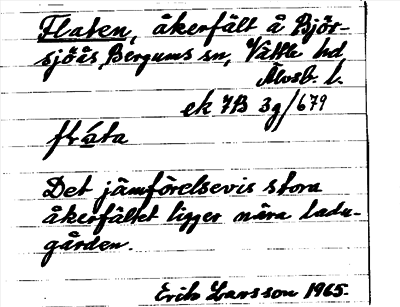 Flaten, åkerfält å Björ-
sjöås, Bergums sn, Vättle hd
Älvsb. l.
ek 7B 3g/679
fláta
Det jämförelsevis stora
åkerfältet ligger nära ladu-
gården.
Erik Larsson 1965.